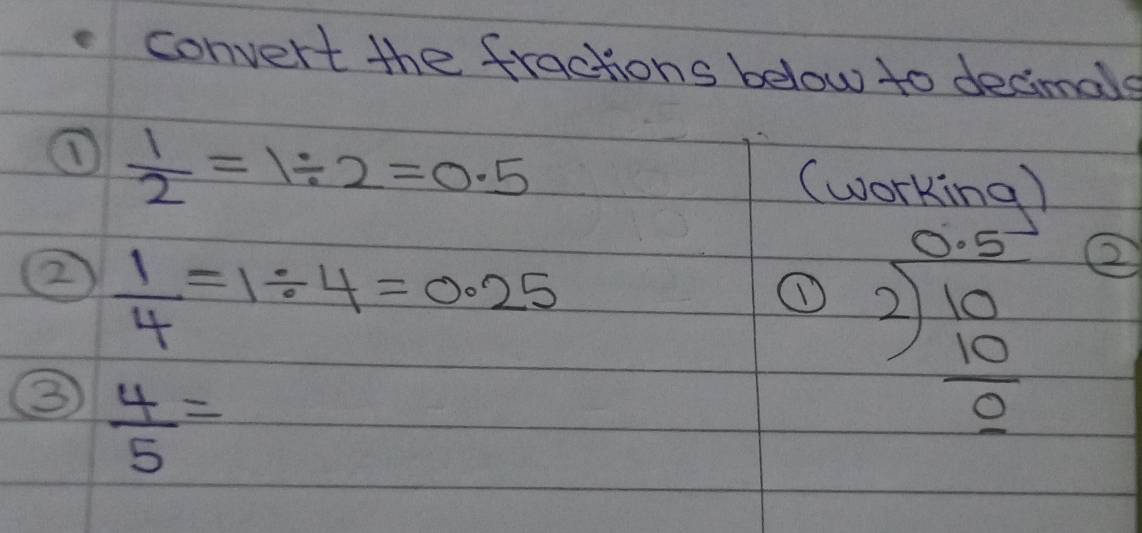 • convert the fractions below to decimals
① 1/2 = 1÷2 = 0.5
② 1/4 = 1÷4 = 0.25
③ 4/5 =
(working)
① 0.5
2)10
10
0
②